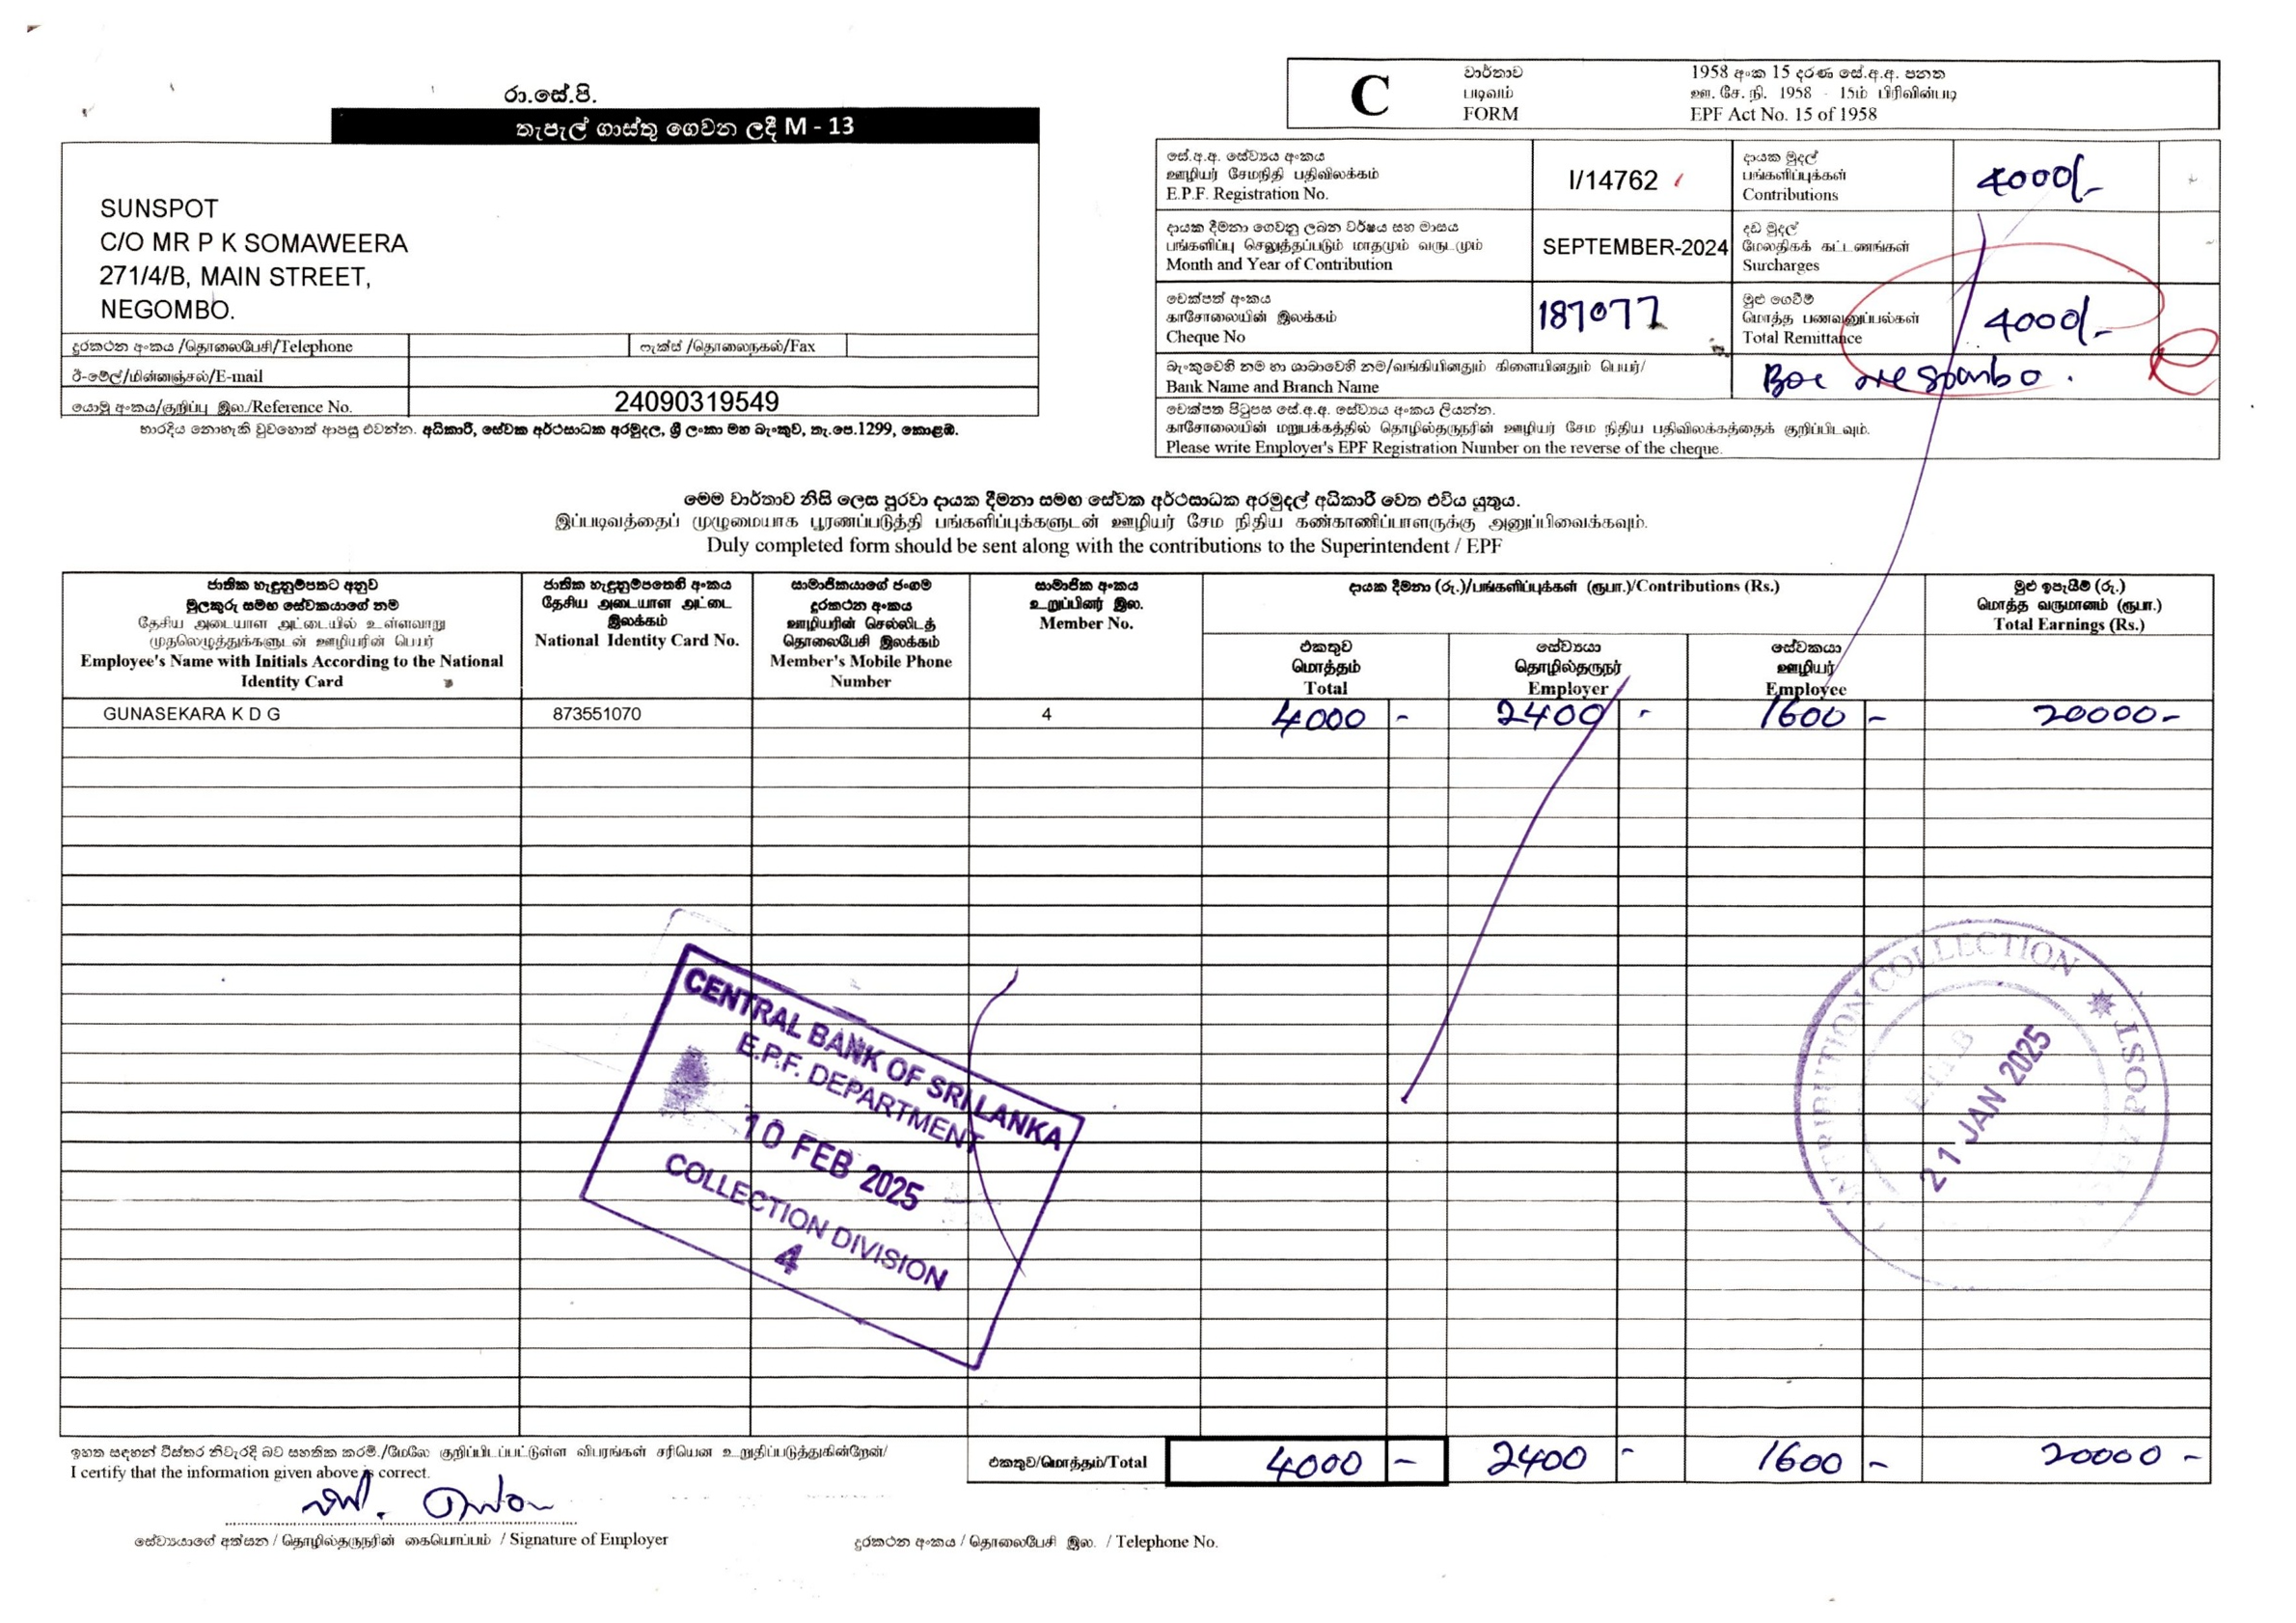 රා.සේ.පි.
තැපැල් ගාස්තු ගෙවන ලදී M - 13
SUNSPOT
C/O MR P K SOMAWEERA
271/4/B, MAIN STREET,
NEGOMBO.
දුරකථන අංකය /தொலைபேசி/Telephone
ෆැක්ස් /தொலைநகல்/Fax
ඊ-මේල්/மின்னஞ்சல்/E-mail
යොමු අංකය/குறிப்பு இல./Reference No. 24090319549
භාරදිය නොහැකි වුවහොත් ආපසු එවන්න. අධිකාරී, සේවක අර්ථසාධක අරමුදල, ශ්‍රී ලංකා මහ බැංකුව, තැ.පෙ.1299, කොළඹ.
C
වාර්තාව
படிவம்
FORM
1958 අංක 15 දරණ සේ.අ.අ. පනත
ஊ. சே. நி. 1958 - 15ம் பிரிவின்படி
EPF Act No. 15 of 1958
සේ.අ.අ. සේව්‍යය අංකය
ஊழியர் சேமநிதி பதிவிலக்கம்
E.P.F. Registration No.
I/14762
දායක මුදල්
பங்களிப்புக்கள்
Contributions
4000/-
දායක දීමනා ගෙවනු ලබන වර්ෂය සහ මාසය
பங்களிப்பு செலுத்தப்படும் மாதமும் வருடமும்
Month and Year of Contribution
SEPTEMBER-2024
දඩ මුදල්
மேலதிகக் கட்டணங்கள்
Surcharges
චෙක්පත් අංකය
காசோலையின் இலக்கம்
Cheque No
187077
මුළු ගෙවීම්
மொத்த பணவனுப்பல்கள்
Total Remittance
4000/-
බැංකුවෙහි නම හා ශාඛාවෙහි නම/வங்கியினதும் கிளையினதும் பெயர்/
Bank Name and Branch Name
චෙක්පත පිටුපස සේ.අ.අ. සේව්‍යය අංකය ලියන්න.
காசோலையின் மறுபக்கத்தில் தொழில்தருநரின் ஊழியர் சேம நிதிய பதிவிலக்கத்தைக் குறிப்பிடவும்.
Please write Employer's EPF Registration Number on the reverse of the cheque.
මෙම වාර්තාව නිසි ලෙස පුරවා දායක දීමනා සමඟ සේවක අර්ථසාධක අරමුදල් අධිකාරී වෙත එවිය යුතුය.
இப்படிவத்தைப் முழுமையாக பூரணப்படுத்தி பங்களிப்புக்களுடன் ஊழியர் சேம நிதிய கண்காணிப்பாளருக்கு அனுப்பிவைக்கவும்.
Duly completed form should be sent along with the contributions to the Superintendent / EPF
ජාතික හැඳුනුම්පතට අනුව
මුලකුරු සමඟ සේවකයාගේ නම
தேசிய அடையாள அட்டையில் உள்ளவாறு
முதலெழுத்துக்களுடன் ஊழியரின் பெயர்
Employee's Name with Initials According to the National
Identity Card
ජාතික හැඳුනුම්පතෙහි අංකය
தேசிய அடையாள அட்டை
இலக்கம்
National Identity Card No.
සාමාජිකයාගේ ජංගම
දුරකථන අංකය
ஊழியரின் செல்லிடத்
தொலைபேசி இலக்கம்
Member's Mobile Phone
Number
සාමාජික අංකය
உறுப்பினர் இல.
Member No.
දායක දීමනා (රු.)/பங்களிப்புக்கள் (ரூபா.)/Contributions (Rs.)
එකතුව
மொத்தம்
Total
සේව්‍යයා
தொழில்தருநர்
Employer
සේවකයා
ஊழியர்
Employee
මුළු ඉපැයීම් (රු.)
மொத்த வருமானம் (ரூபா.)
Total Earnings (Rs.)
GUNASEKARA K D G 873551070 4 4000 - 2400 - 1600 - 20000-
CENTRAL BANK OF SRI LANKA
E.P.F. DEPARTMENT
10 FEB 2025
COLLECTION DIVISION
4
COLLECTION
POST
21 JAN 2025
ඉහත සඳහන් විස්තර නිවැරදි බව සහතික කරමි./மேலே குறிப்பிடப்பட்டுள்ள விபரங்கள் சரியென உறுதிப்படுத்துகின்றேன்/
I certify that the information given above is correct.
එකතුව/மொத்தம்/Total 4000 - 2400 - 1600 - 20000 -
සේව්‍යයාගේ අත්සන / தொழில்தருநரின் கையொப்பம் / Signature of Employer
දුරකථන අංකය / தொலைபேசி இல. / Telephone No.